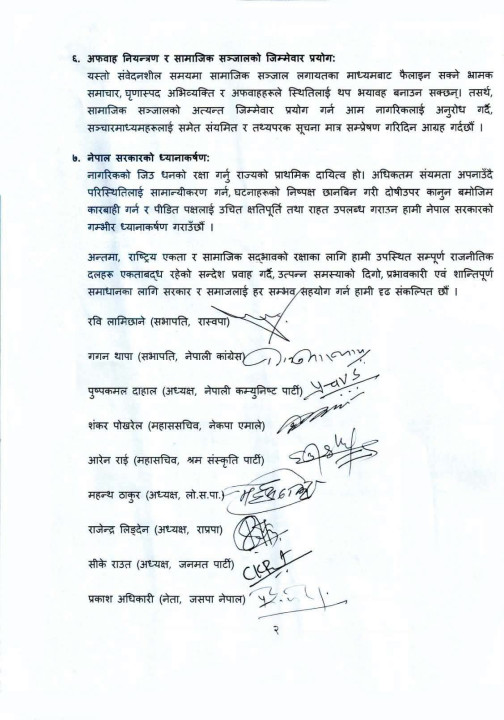 ६. अफवाह नियन्त्रण र सामाजिक सञ्जालको जिम्मेवार प्रयोग:
यस्तो संवेदनशील समयमा सामाजिक सञ्जाल लगायतका माध्यमबाट फैलाइन सक्ने भ्रामक
समाचार, घृणास्पद अभिव्यक्ति र अफवाहहरूले स्थितिलाई थप भयावह बनाउन सक्छन्। तसर्थ,
सामाजिक सञ्जालको अत्यन्त जिम्मेवार प्रयोग गर्न आम नागरिकलाई अनुरोध गर्दै,
सञ्चारमाध्यमहरूलाई समेत संयमित र तथ्यपरक सूचना मात्र सम्प्रेषण गरिदिन आग्रह गर्दछौं ।
७. नेपाल सरकारको ध्यानाकर्षण:
नागरिकको जिउ धनको रक्षा गर्नु राज्यको प्राथमिक दायित्व हो। अधिकतम संयमता अपनाउँदै
परिस्थितिलाई सामान्यीकरण गर्न, घटनाहरूको निष्पक्ष छानबिन गरी दोषीउपर कानुन बमोजिम
कारबाही गर्न र पीडित पक्षलाई उचित क्षतिपूर्ति तथा राहत उपलब्ध गराउन हामी नेपाल सरकारको
गम्भीर ध्यानाकर्षण गराउँछौं ।
अन्तमा, राष्ट्रिय एकता र सामाजिक सद्भावको रक्षाका लागि हामी उपस्थित सम्पूर्ण राजनीतिक
दलहरू एकताबद्ध रहेको सन्देश प्रवाह गर्दै, उत्पन्न समस्याको दिगो, प्रभावकारी एवं शान्तिपूर्ण
समाधानका लागि सरकार र समाजलाई हर सम्भव सहयोग गर्न हामी दृढ संकल्पित छौं ।
रवि लामिछाने (सभापति, रास्वपा)
गगन थापा (सभापति, नेपाली कांग्रेस)
पुष्पकमल दाहाल (अध्यक्ष, नेपाली कम्युनिष्ट पार्टी)
शंकर पोखरेल (महाससचिव, नेकपा एमाले)
आरेन राई (महासचिव, श्रम संस्कृति पार्टी)
महन्थ ठाकुर (अध्यक्ष, लो.स.पा.)
राजेन्द्र लिङ्देन (अध्यक्ष, राप्रपा)
सीके राउत (अध्यक्ष, जनमत पार्टी)
प्रकाश अधिकारी (नेता, जसपा नेपाल)
२